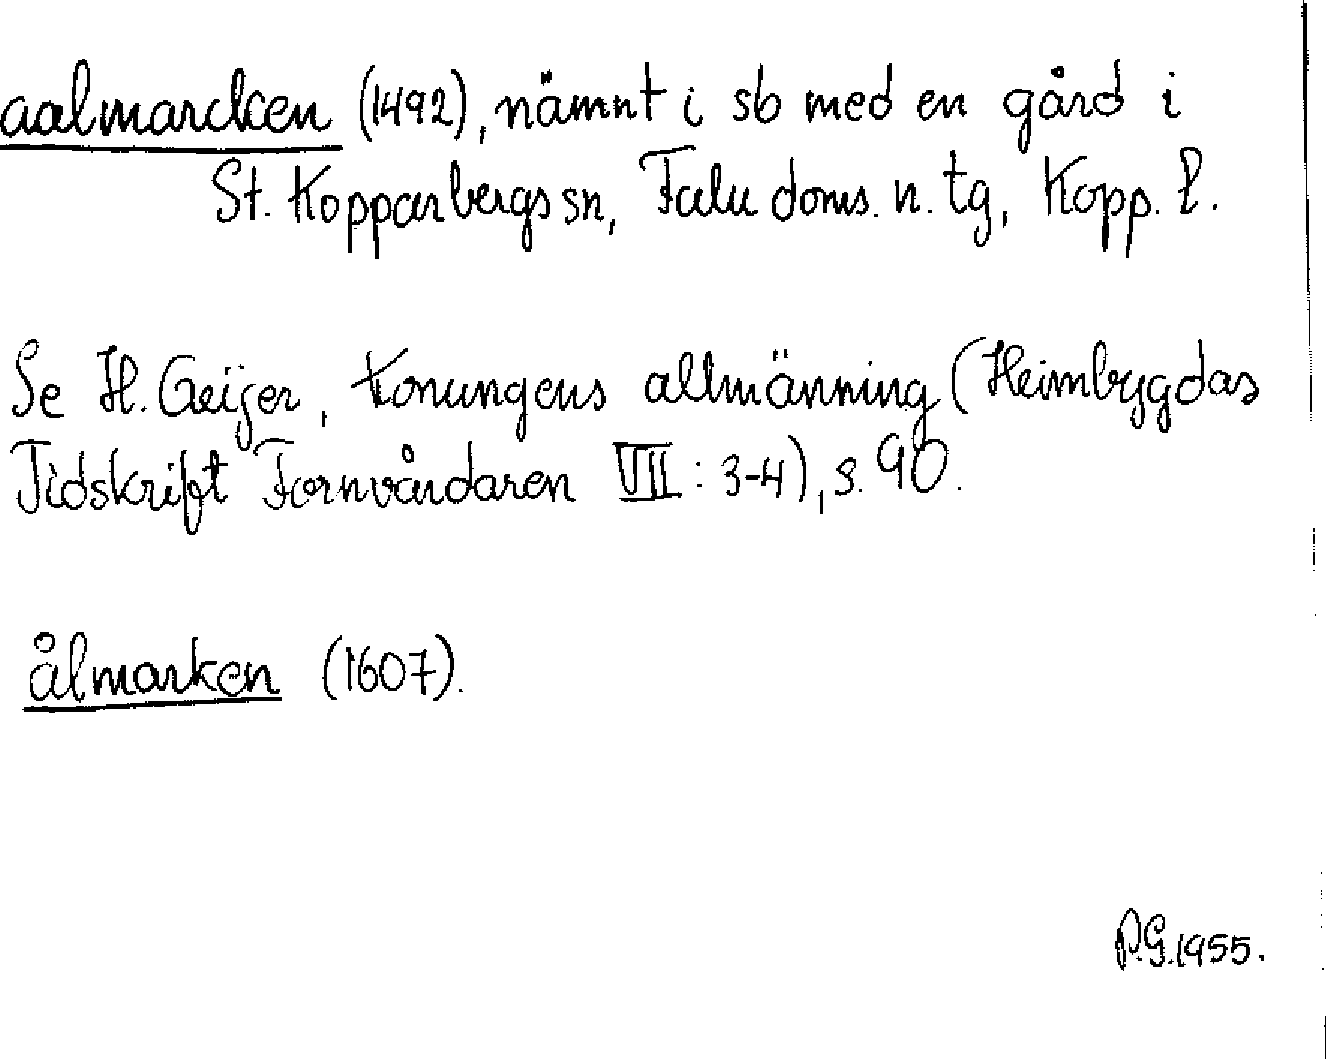 aalmarcken (1492), nämnt i sb med en gård i
St. Kopparbergs sn, Falu doms. n. tg, Kopp. l.
Se H. Geijer, Konungens allmänning (Heimbygdas
Tidskrift Fornvårdaren VII : 3-4), s. 90.
ålmarken (1607).
P.G. 1955.